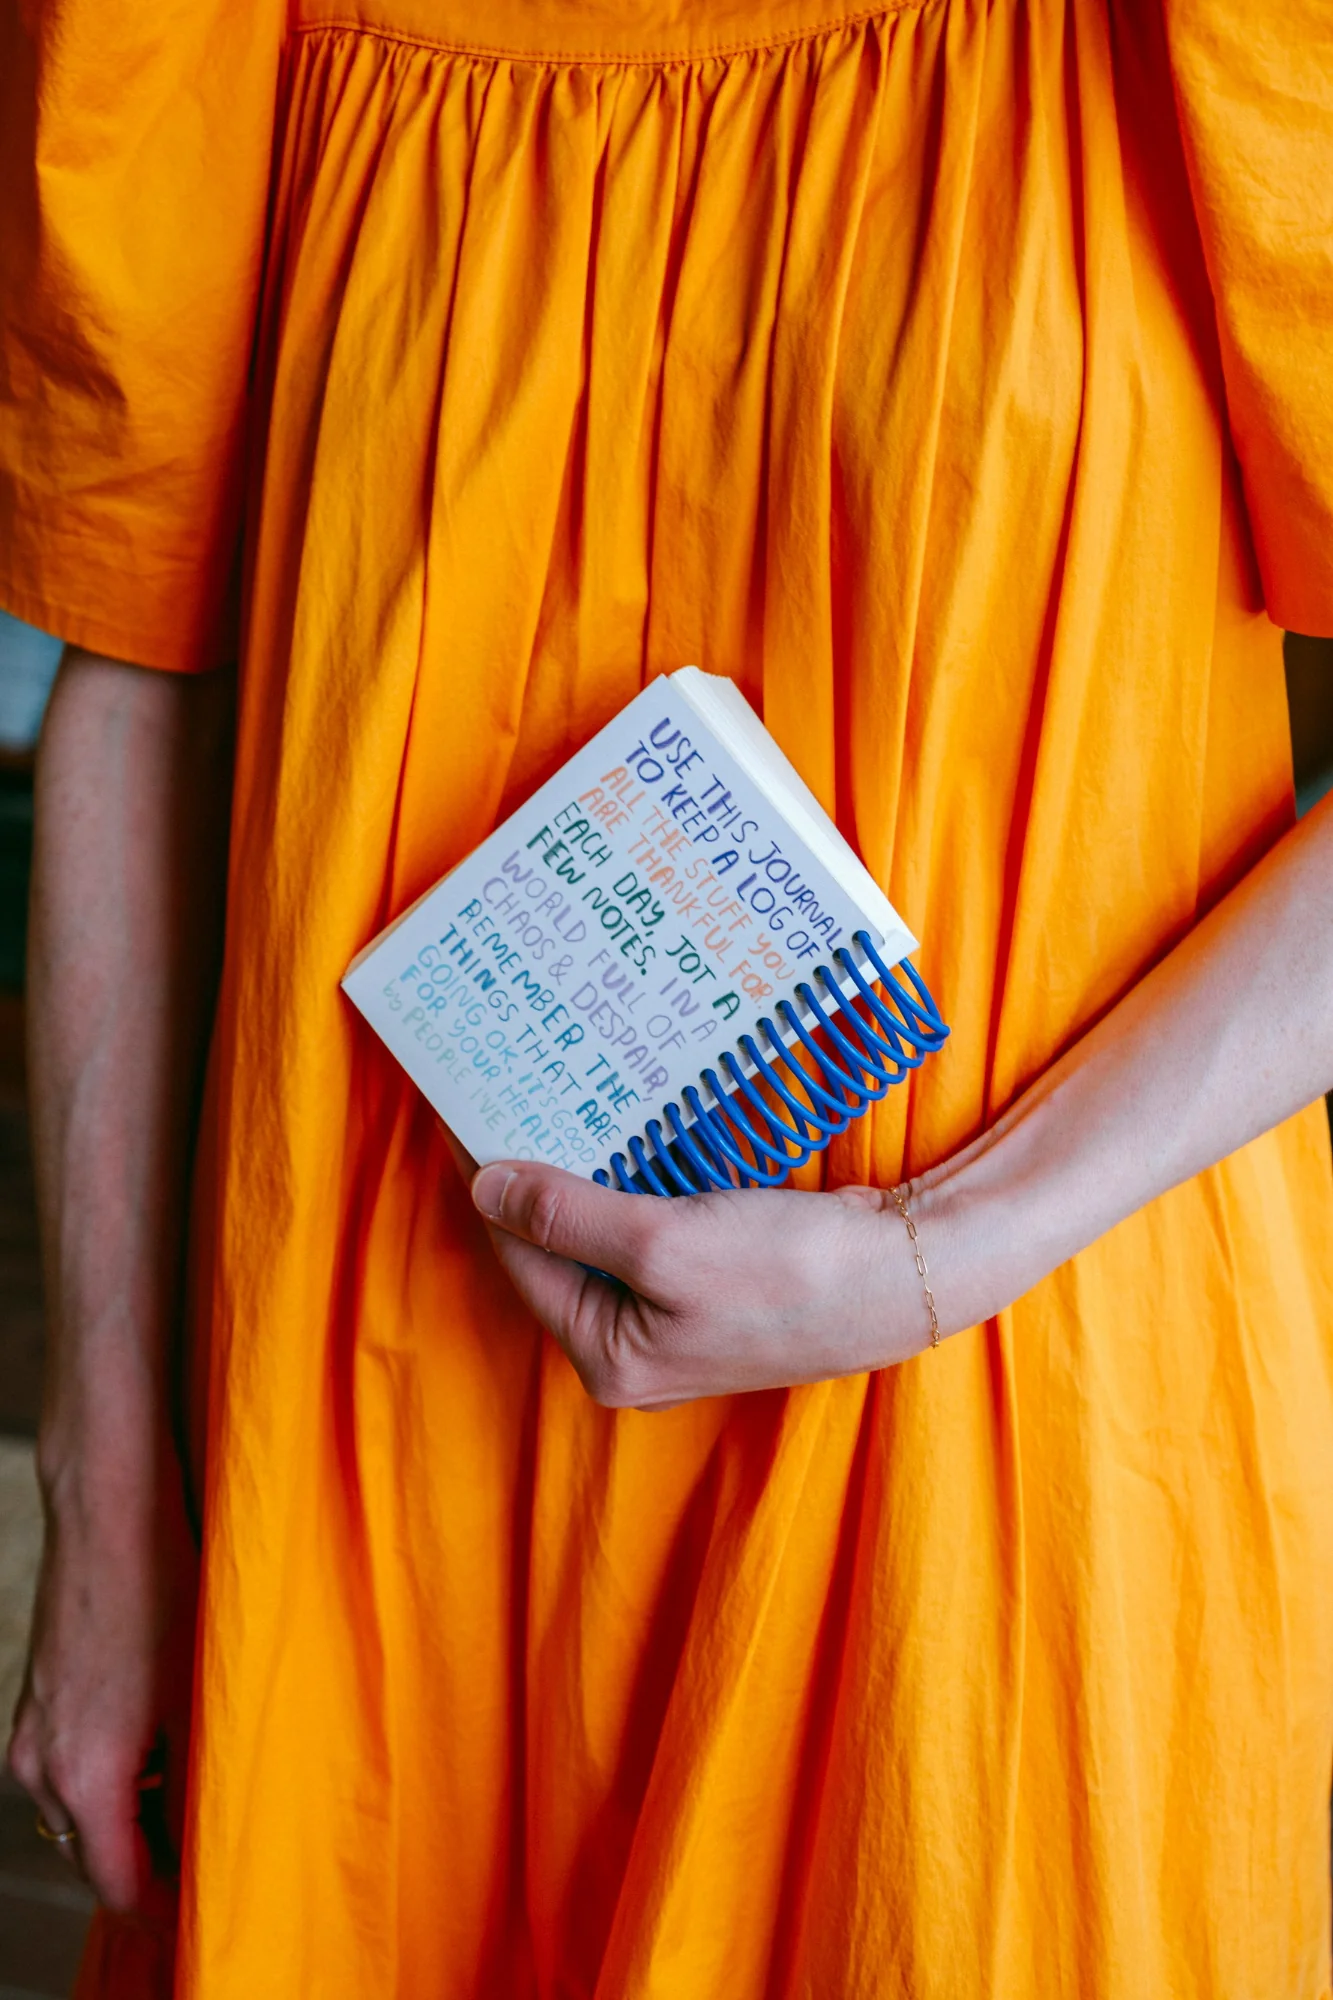 USE THIS JOURNAL
TO KEEP A LOG OF
ALL THE STUFF YOU
ARE THANKFUL FOR.
EACH DAY, JOT A
FEW NOTES. IN A
WORLD FULL OF
CHAOS & DESPAIR,
REMEMBER THE
THINGS THAT ARE
GOING OK. IT'S GOOD
FOR YOUR HEALTH
by PEOPLE I'VE